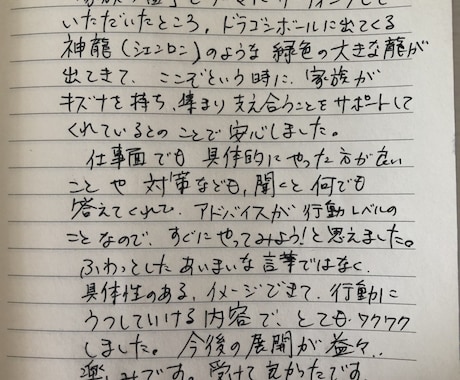 いただいたところ、ドラゴンボールに出てくる
神龍(シェンロン)のような緑色の大きな龍が
出てきて、ここぞという時に、家族が
キズナを持ち、集まり支え合うことをサポートして
くれているとのことで安心しました。
仕事面でも具体的にやった方が良い
ことや対策なども、聞くと何でも
答えてくれて、アドバイスが行動レベルの
ことなので、すぐにやってみよう!と思えました。
ふわっとしたあいまいな言葉ではなく、
具体性のある、イメージできて、行動に
うつしていける内容で、とてもワクワク
しました。今後の展開が益々、
楽しみです。受けて良かったです。